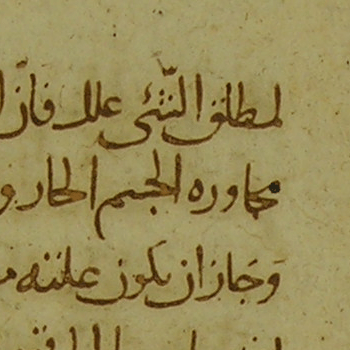 لمطلق الشئ علل فان
مجاوره الجسم الحار و
وجاز ان يكون علته